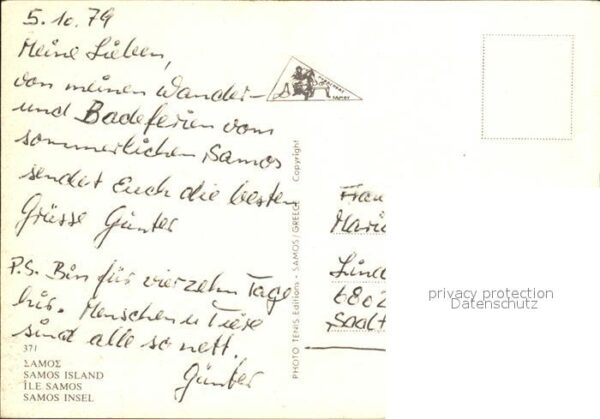 5.10.79
Meine Lieben,
von meinen Wander-
und Badeferien vom
sommerlichen Samos
sendet Euch die besten
Grüsse Günter
P.S. Bin für vierzehn Tage
hier. Menschen u Tiere
sind alle so nett.
Günter
371
ΣΑΜΟΣ
SAMOS ISLAND
ÎLE SAMOS
SAMOS INSEL
PHOTO TENIS Editions - SAMOS/GREECE Copyright
SAMOS
Frau
Mari
Lind
6802
privacy protection
Datenschutz